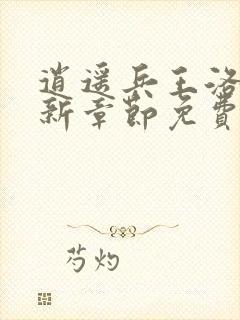 逍遥兵王洛
新章节免费
芍灼